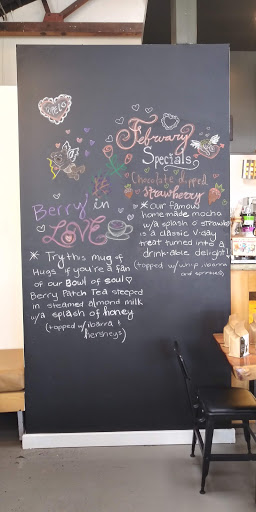 February
Specials
Chocolate dipped
strawberry
* Our famous
homemade mocha
w/a splash o' strawb
is a classic v-day
treat turned into a
drink-able delight!
(topped w/ whip, ibarra
and sprinkles)
Berry in
LOVE
* Try this mug of
Hugs if you're a fan
of our Bowl of soul♡
Berry Patch Tea steeped
in steamed almond milk
w/a splash of honey
(topped w/ ibarra &
hersheys)